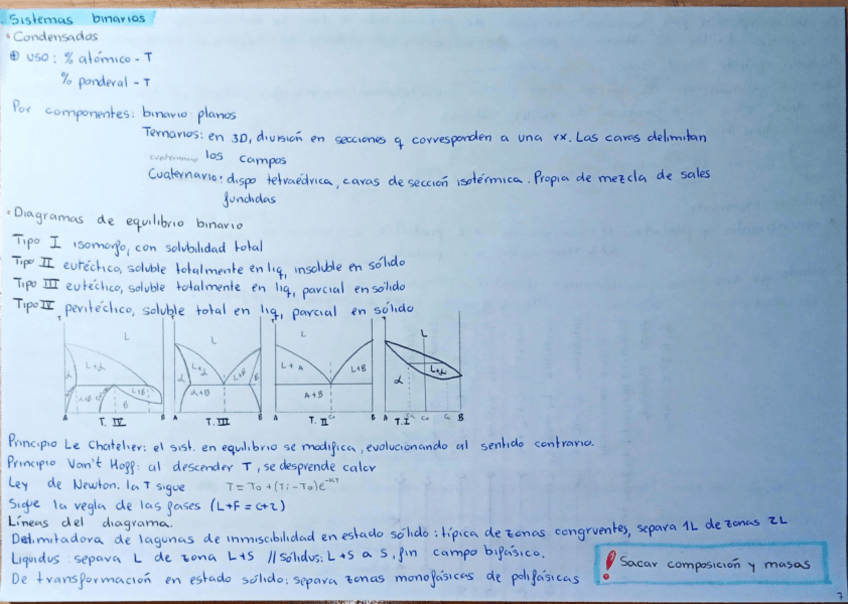 Sistemas binarios
• Condensadas
⊕ uso: % atómico - T
% ponderal - T
Por componentes: binario: planos
Ternarios: en 3D, división en secciones q corresponden a una rx. Las caras delimitan
los campos
Cuaternario: dispo tetraédrica, caras de sección isotérmica. Propia de mezcla de sales
fundidas
• Diagramas de equilibrio binario
Tipo I isomorfo, con solubilidad total
Tipo II eutéctico, soluble totalmente en liq, insoluble en sólido
Tipo III eutéctico, soluble totalmente en liq, parcial en sólido
Tipo IV, peritéctico, soluble total en liq, parcial en sólido
L L L L
L+α L+α L+B L+A L+B L+α
α α B α
α+B L+B α+B A+B
B
A B A B A Co B A Co B
T. IV T. III T. II T. I
Principio Le Chatelier: el sist. en equlibrio se modifica, evolucionando al sentido contrario.
Principio Van't Hoff: al descender T, se desprende calor
Ley de Newton: la T sigue T = To + (Ti - To)e
Sigue la regla de las fases (L+F = C+2)
Líneas del diagrama.
Delimitadora de lagunas de inmiscibilidad en estado sólido: típica de zonas congruentes, separa 1L de zonas 2L
Liquidus: separa L de zona L+S // Sólidus: L+S a S, fin campo bifásico.
De transformación en estado sólido: separa zonas monofásicas de polifásicas
! Sacar composición y masas
7